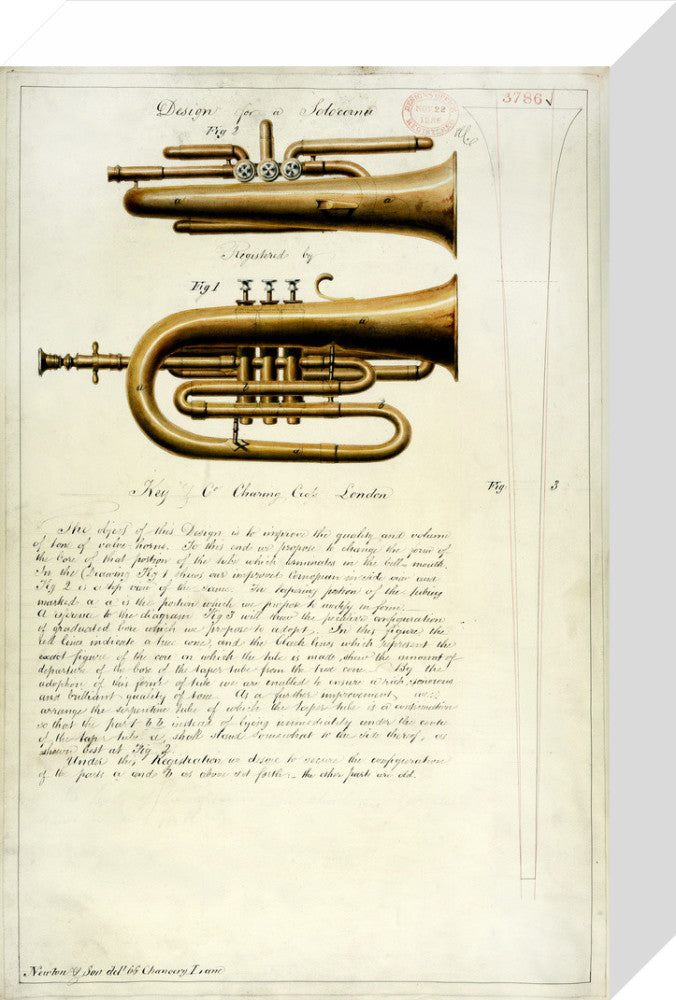 3786
DESIGNS OFFICE
NOV 22
REGISTERED
Design for a Solocorno
Fig 2
a
a
Registered by
Fig 1
a
a
b
g
a
Key & Co Charing Cross London
Fig 3
The object of this Design is to improve the quality and volume
of tone of valve horns. To this end we propose to change the form of
the bore of that portion of the tube which terminates in the bell mouth.
In the Drawing Fig 1 shews our improved Cornopean in side view and
Fig 2 is a top view of the same. The tapering portion of the tubing
marked a a is the portion which we propose to modify in form.
A reference to the diagram Fig 3 will shew the peculiar configuration
of graduated bore which we propose to adopt. In this figure the
red lines indicate a true cone, and the black lines which represent the
exact figure of the core on which the tube is made shew the amount of
departure of the bore of the taper tube from the true cone. By the
adoption of this form of tube we are enabled to ensure a rich, sonorous
and brilliant quality of tone. As a further improvement, we
arrange the serpentine tube of which the taper tube is a continuation
so that the part b b instead of lying immediately under the centre
of the taper tube a, shall stand somewhat to the side thereof, as
shewn best at Fig. 2.
Under this Registration we desire to secure the configuration
of the parts a and b as above set forth: the other parts are old.
Newton & Son delt 66 Chancery Lane